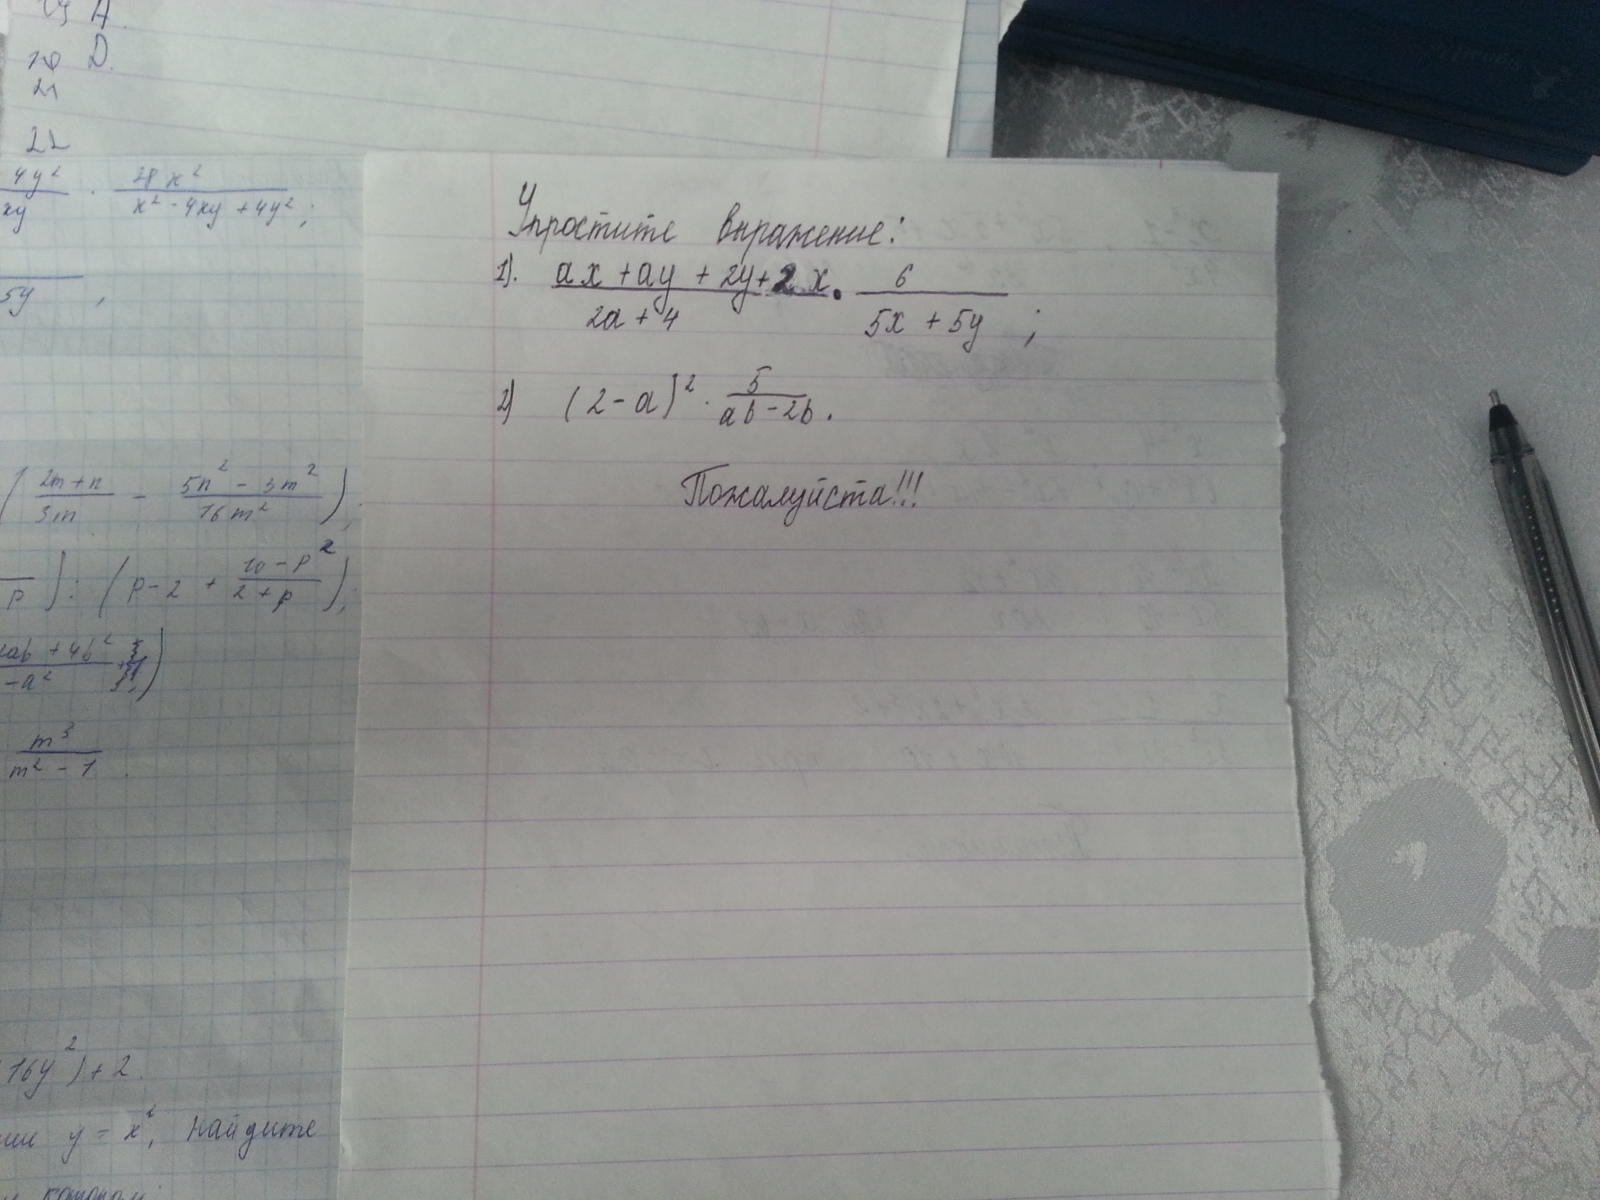 19 A.
20 D.
21
22
4y² / xy · 28x² / x² - 4xy + 4y² ;
5y ,
( 2m+n / 3m - 5n² - 3m² / 16m² ) ,
p ) : ( p-2 + 10-p² / 2+p ) ;
ab + 4b²
-a²
m³ / m² - 1 .
16y² ) + 2 .
y = x² , найдите
Упростите выражение:
1). ax + ay + 2y + 2x / 2a + 4 · 6 / 5x + 5y ;
2) (2-a)² · 5 / ab - 2b .
Пожалуйста!!!